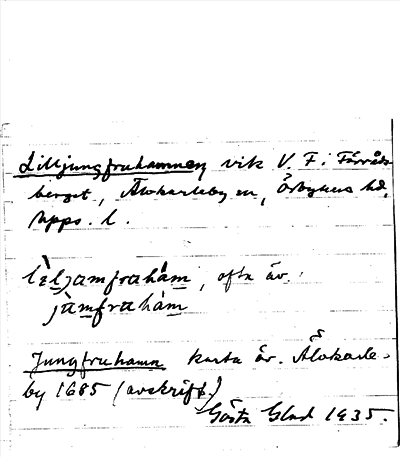 Lilljungfruhamnen, vik V. F. i Förråds-
berget, Älvkarleby sn, Örbyhus hd,
Upps. l.
lèljamfrahàm, ofta äv.:
jàmfrahàm
Jungfruhamn karta öv. Älvkarle-
by 1685 (avskrift.)
Gösta Glad 1935.